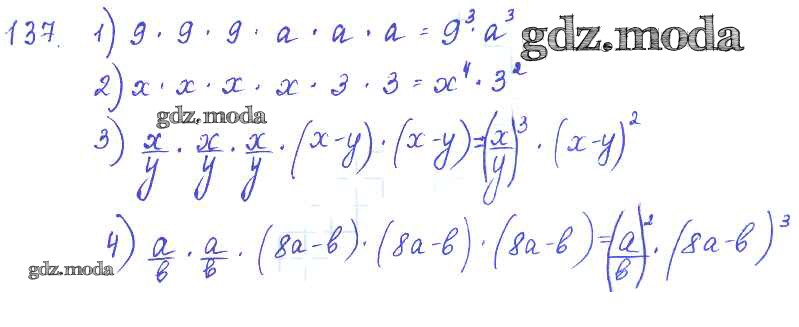 137. 1) 9 · 9 · 9 · a · a · a = 9³ · a³ gdz.moda
2) x · x · x · x · 3 · 3 = x⁴ · 3²
gdz.moda
3) x/y · x/y · x/y · (x-y) · (x-y) = (x/y)³ · (x-y)²
4) a/в · a/в · (8a-в) · (8a-в) · (8a-в) = (a/в)² · (8a-в)³
gdz.moda